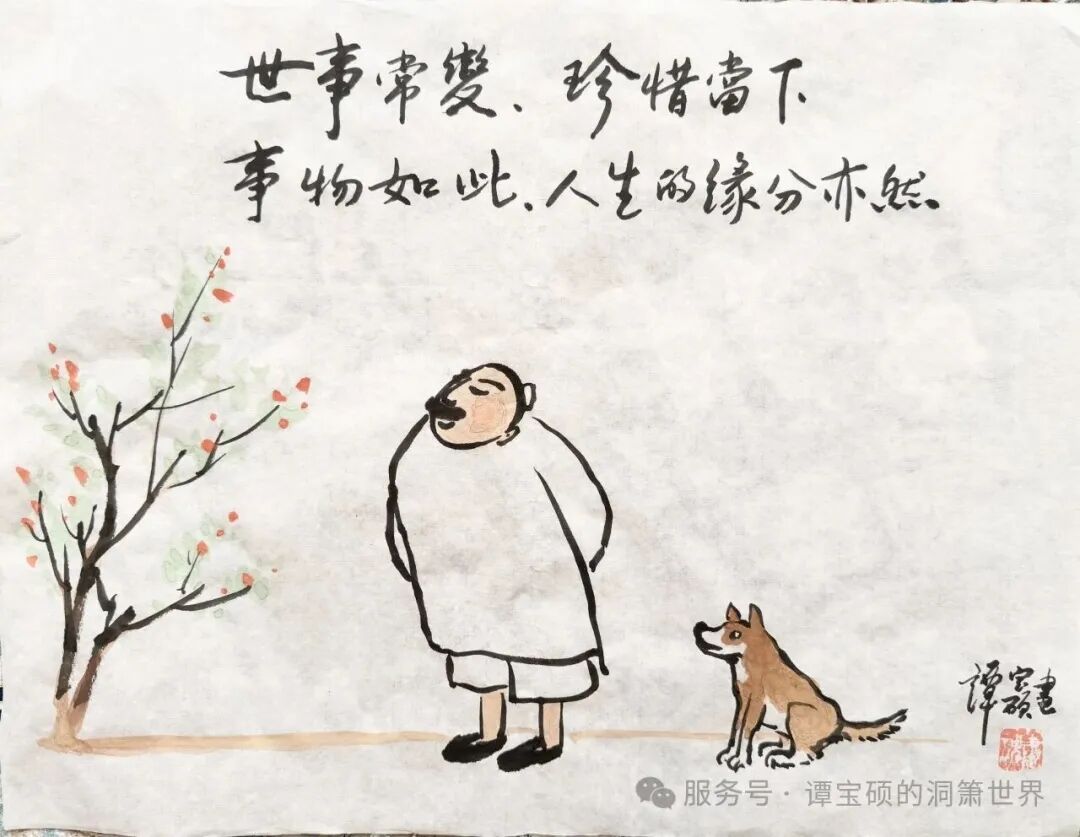 世事常變、珍惜當下
事物如此、人生的緣分亦然。
譚寶碩畫
服务号·谭宝硕的洞箫世界